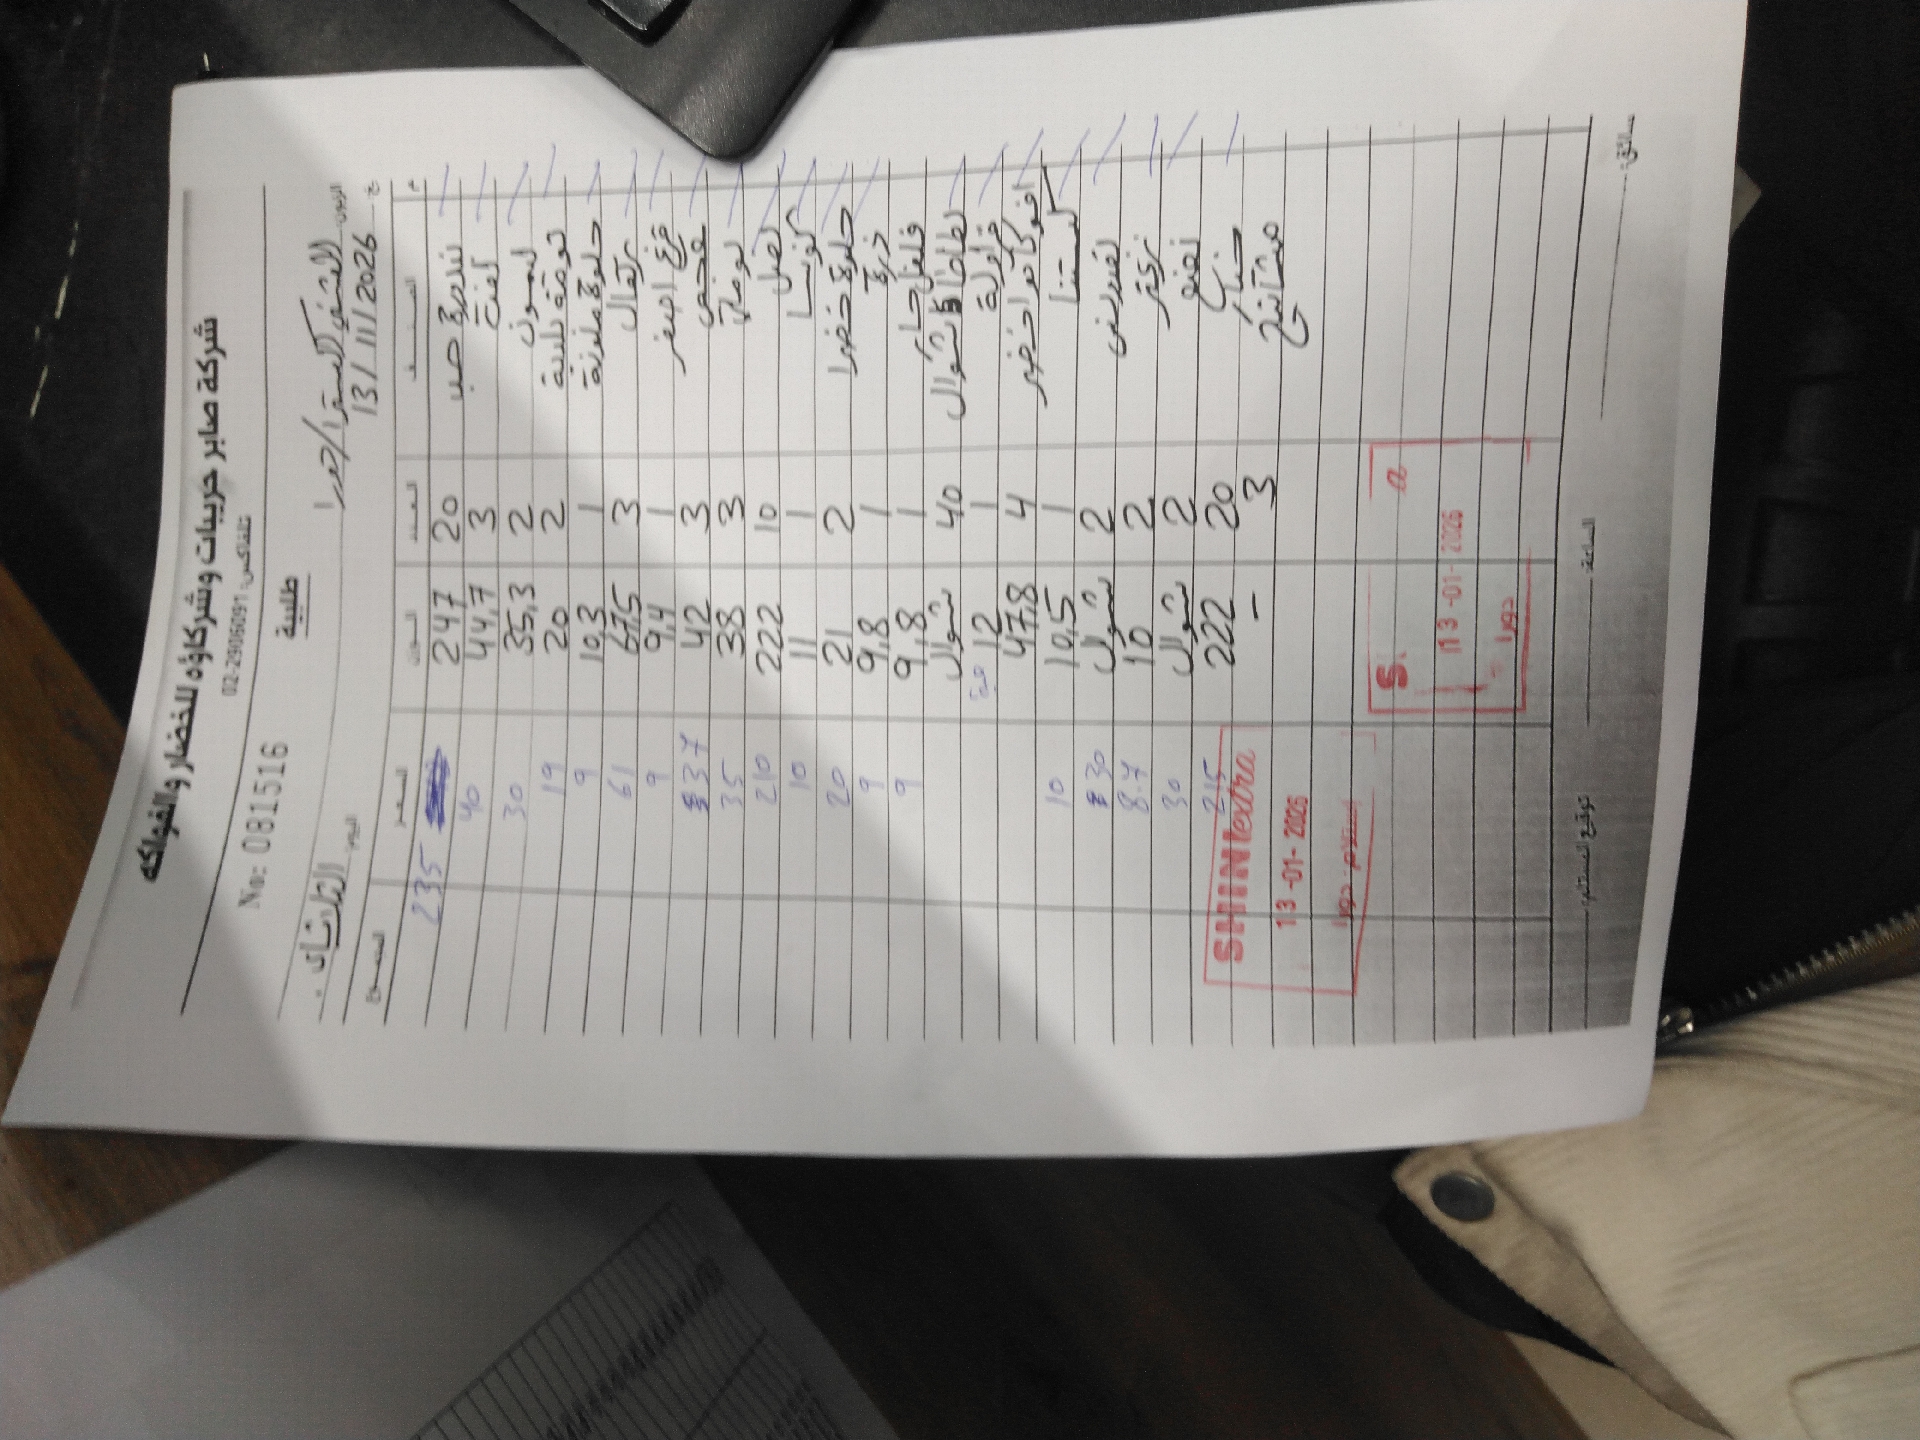 شركة صابر حريبات وشركاؤه للخضار والفواكه
تلفاكس: 02-2906091
No: 0816516
طلبية
اليوم: الثلاثاء
13/11/2026
م الصنف العدد الوزن السعر المجموع
بندورة حب 20 247 235
3 44,7 40
ليمون 2 35,3 30
2 20 19
حلوة ملونة 1 10,3 9
برتقال 3 67,5 61
قرع اصفر 1 9,4 9
3 42 37
بوملي 3 38 35
بصل 10 222 210
1 11 10
حلوة خضرا 2 21 20
ذرة 1 9,8 9
فلفل حار 1 9,8 9
بطاطا شوال 40 شوال
فراولة 1 12 حبة
افوكادو اخضر 4 47,8
كستنا 1 10,5 10
2 شوال 30
2 10 8.7
2 شوال 30
خيار 20 222 215
مشاتيح 3 -
SHINI extra
13-01-2026
استلام: دورا
S
13-01-2026
دورا
سائق:
الساعة:
توقيع المستلم: